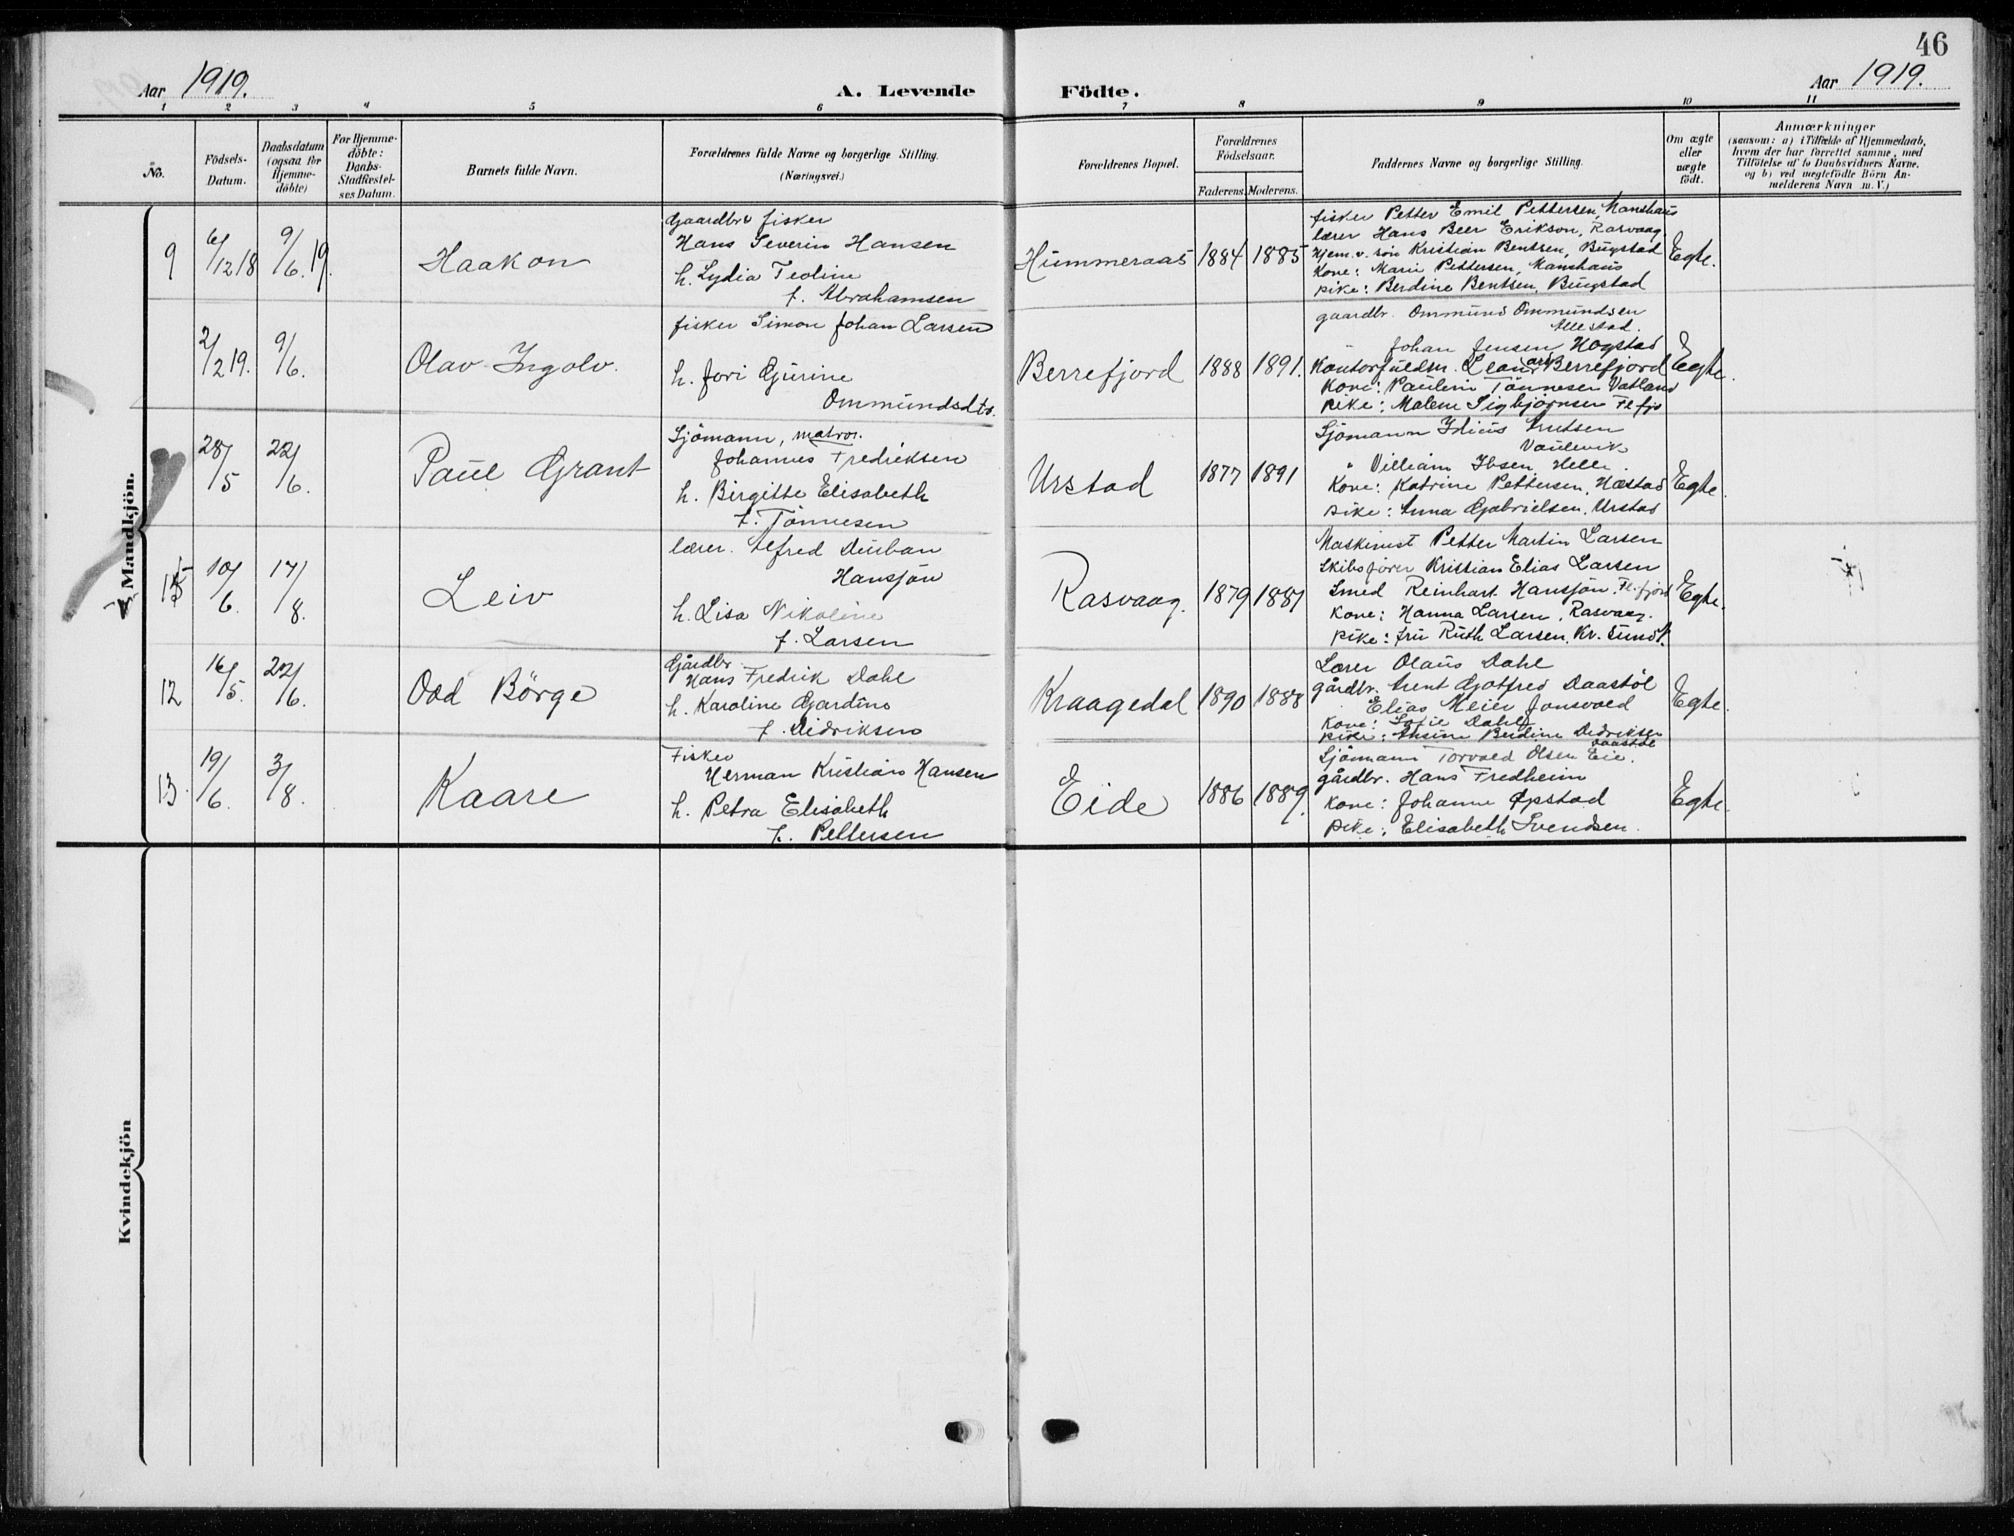 46
Aar 1919.
A. Levende Födte.
Aar 1919.
1 2 3 4 5 6 7 8 9 10 11
No.
Födsels-
Datum.
Daabsdatum
(ogsaa for
Hjemme-
döbte)
For Hjemme-
döbte:
Daabs-
Stadfæstel-
ses Datum.
Barnets fulde Navn.
Forældrenes fulde Navne og borgerlige Stilling.
(Næringsvei.)
Forældrenes Bopæl.
Forældrenes
Födselsaar.
Faderens. Moderens.
Faddernes Navne og borgerlige Stilling.
Om ægte
eller
uægte
födt.
Anmærkninger
(saasom: a) i Tilfælde af Hjemmedaab,
hvem der har forrettet samme, med
Tilföielse af to Daabsvidners Navne.
og b) ved uægtefödte Börn An-
melderens Navn m. V.)
Mandkjön.
9
6/12 18
9/6. 19.
Haakon
Gaardbr & fisker
Hans Severin Hansen
h. Lydia Teoline
f. Abrahamsen
Hummeraas
1884 1885
fisker Petter Emil Pettersen, Manshaus
lærer Hans Beer Erikson, Rasvaag
Hjem. v. søn Kristian Bentsen, Bugstad
Kone: Marie Pettersen, Manshaus
pike: Berdine Bentsen, Bugstad
Egte.
2/2 19.
9/6.
Olav Ingolv.
fisker Simon Johan Larsen
h. Jori Gurine
Ommundsdtr.
Berrefjord
1888 1891.
gaardbr. Ommund Ommundsen
Allestad.
" Johan Jensen Hogstad
Kontorfuldm. Berrefjord
Kone: Pauline Tønnesen Vatland
pike: Malene Sigbjørnsen Fl.fj.
Egte.
28/5
22/6.
Paul Grant
Sjömann, matros.
Johannes Fredriksen
h. Birgitte Elisabeth
f. Tönnesen
Urstad
1877 1891
Sjömann Knutsen
" Villiam Ibsen, Helle.
Kone: Katrine Pettersen, Hæstad
pike: Anna Gabrielsen, Urstad
Egte.
10/6.
17/8.
Leiv
lærer. Alfred Durban
Hansson
h. Lisa Nikoline
f. Larsen
Rasvaag.
1879 1881
Maskinist Petter Martin Larsen
Skibsfører Kristian Elias Larsen
Smed Reinhart Hansson. Fl.fjord
Kone: Hanna Larsen, Rasvaag.
pike: fru Ruth Larsen, Kr. sund.
Egte.
12
16/5.
22/6.
Odd Börge
Gårdbr.
Hans Fredrik Dahl
h. Karoline Gardine
f. Didriksen
Kraagedal
1890 1888
Lærer Olaus Dahl
gårdbr. Arent Gotfred Daastöl
Elias Meier Jonsvold
Kone: Sofie Dahl
pike: Berdine Didriksen
Daastöl
Egte.
13.
19/6.
3/8.
Kaare
Fisker
Herman Kristian Hansen
h. Petra Elisabeth
f. Pettersen
Eide
1886 1889.
Sjömann Torvald Olsen Eie.
gårdbr. Hans Fredheim
Kone: Johanne Opstad
pike: Elisabeth Svendsen.
Egte.
Kvindekjön